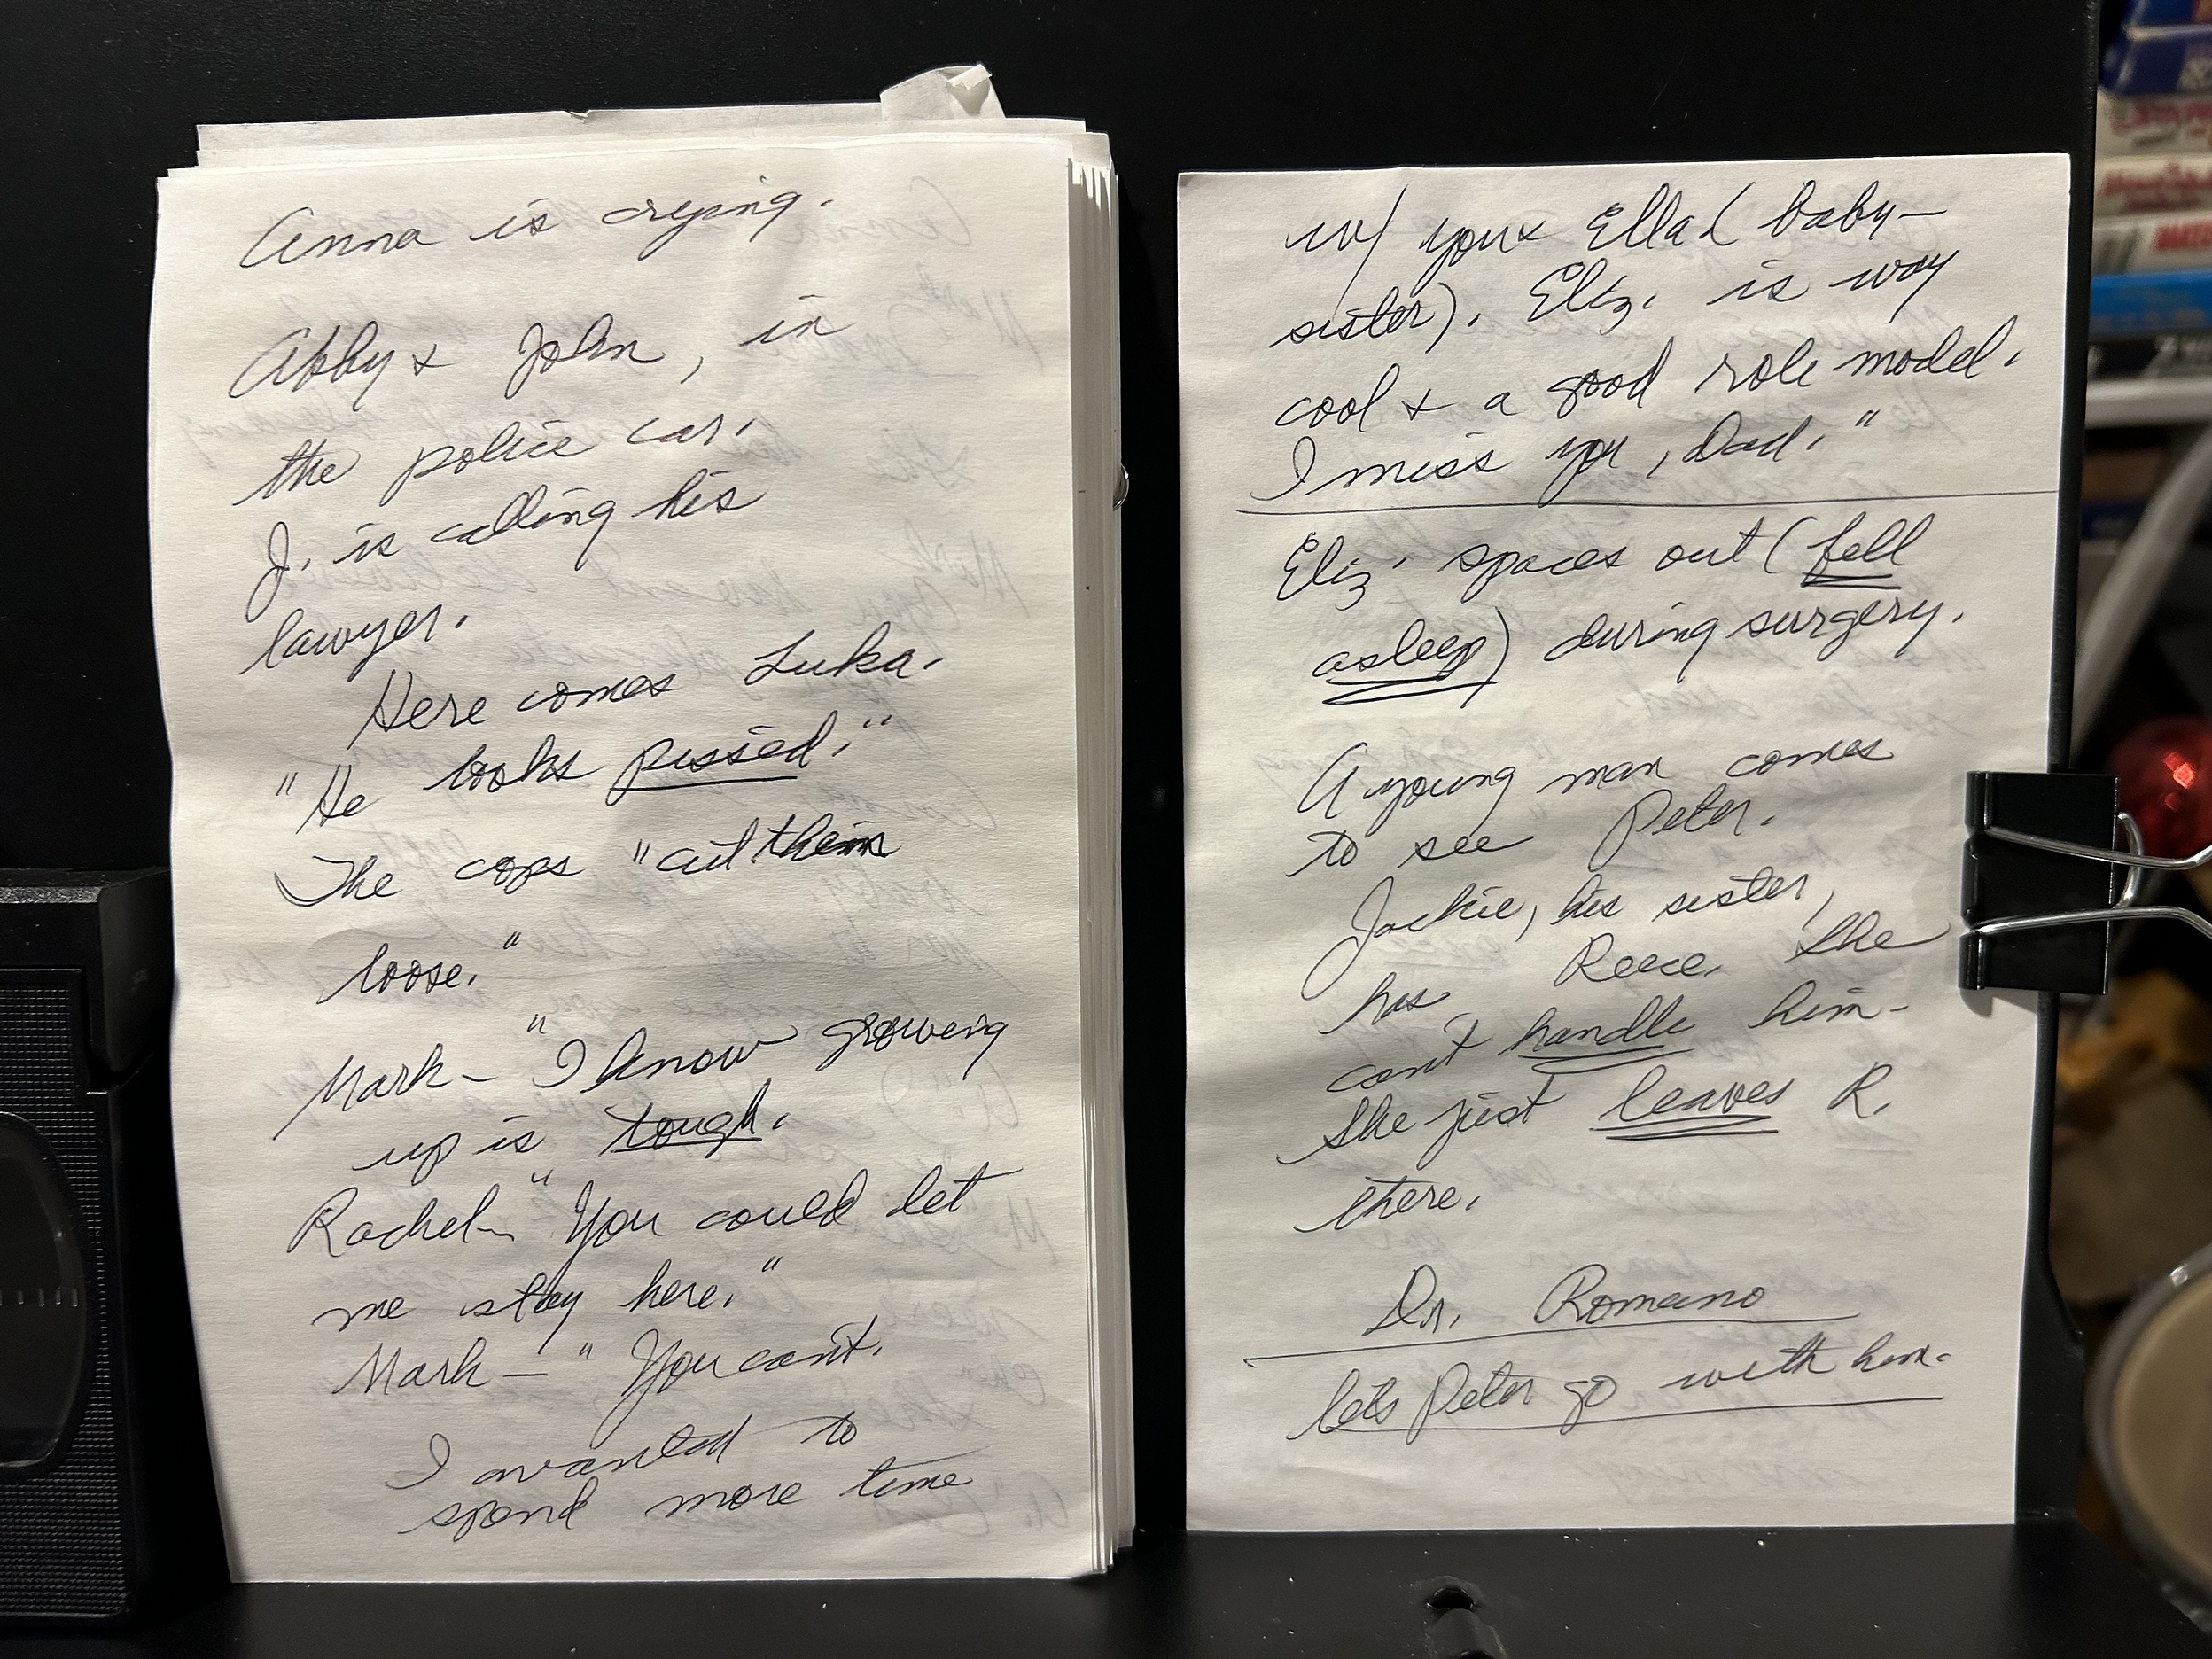 Anna is crying.
Abby + John, in
the police car.
J. is calling his
lawyer.
Here comes Luka.
"He looks pissed."
The cops "cut them
loose."
Mark - "I know growing
up is tough."
Rachel - "You could let
me stay here."
Mark - "You can't.
I wanted to
spend more time
w/ you + Ella (baby-
sister). Eliz. is way
cool + a good role model.
I miss you, Dad."
Eliz. spaces out (fell
asleep) during surgery.
A young man comes
to see Peter.
Jackie, his sister,
has Reece. She
can't handle him -
She just leaves R.
there.
Dr. Romano
lets Peter go with him.